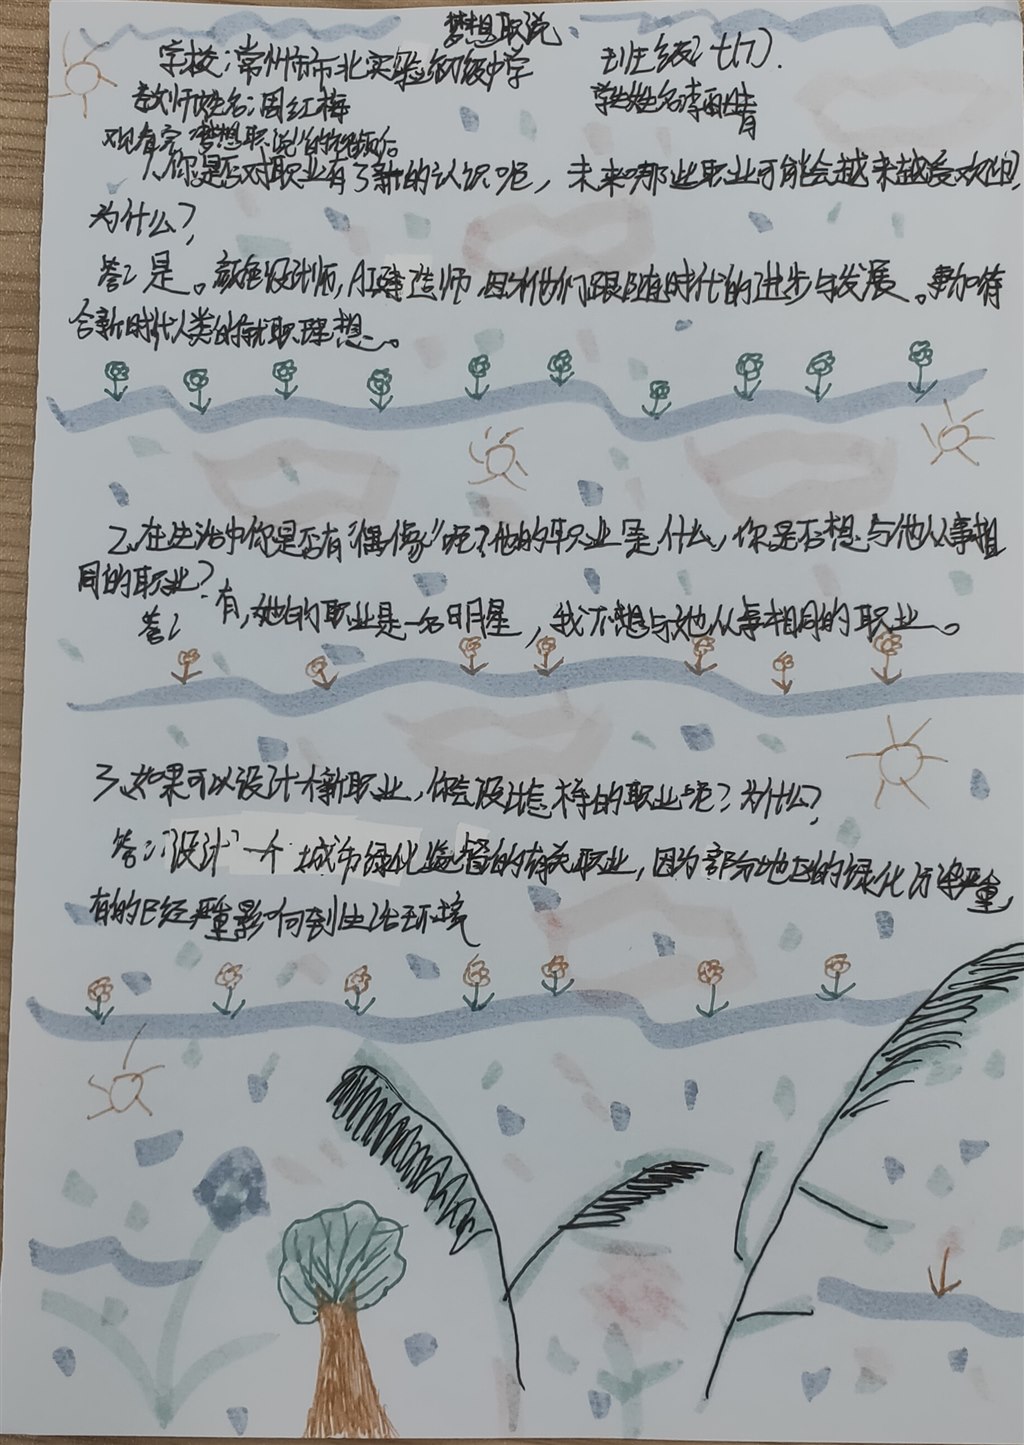 梦想职说
学校:常州市市北实验初级中学 班级:七(7).
教师姓名:周红梅 学生姓名:李雨晴
观看完"梦想职说"的视频后
1、你是否对职业有了新的认识呢,未来哪些职业可能会越来越受欢迎,
为什么?
答:是。颜色设计师,AI建造师,因为他们跟随时代的进步与发展。更加符
合新时代人类的就职理想。
2、在生活中你是否有"偶像"呢?他的职业是什么,你是否想与他从事相
同的职业?
答:有,她的职业是一名明星,我不想与她从事相同的职业。
3、如果可以设计个新职业,你会设计怎样的职业呢?为什么?
答:"设计"一个城市绿化监督的有关职业,因为部分地区的绿化污染严重,
有的已经严重影响到生活环境